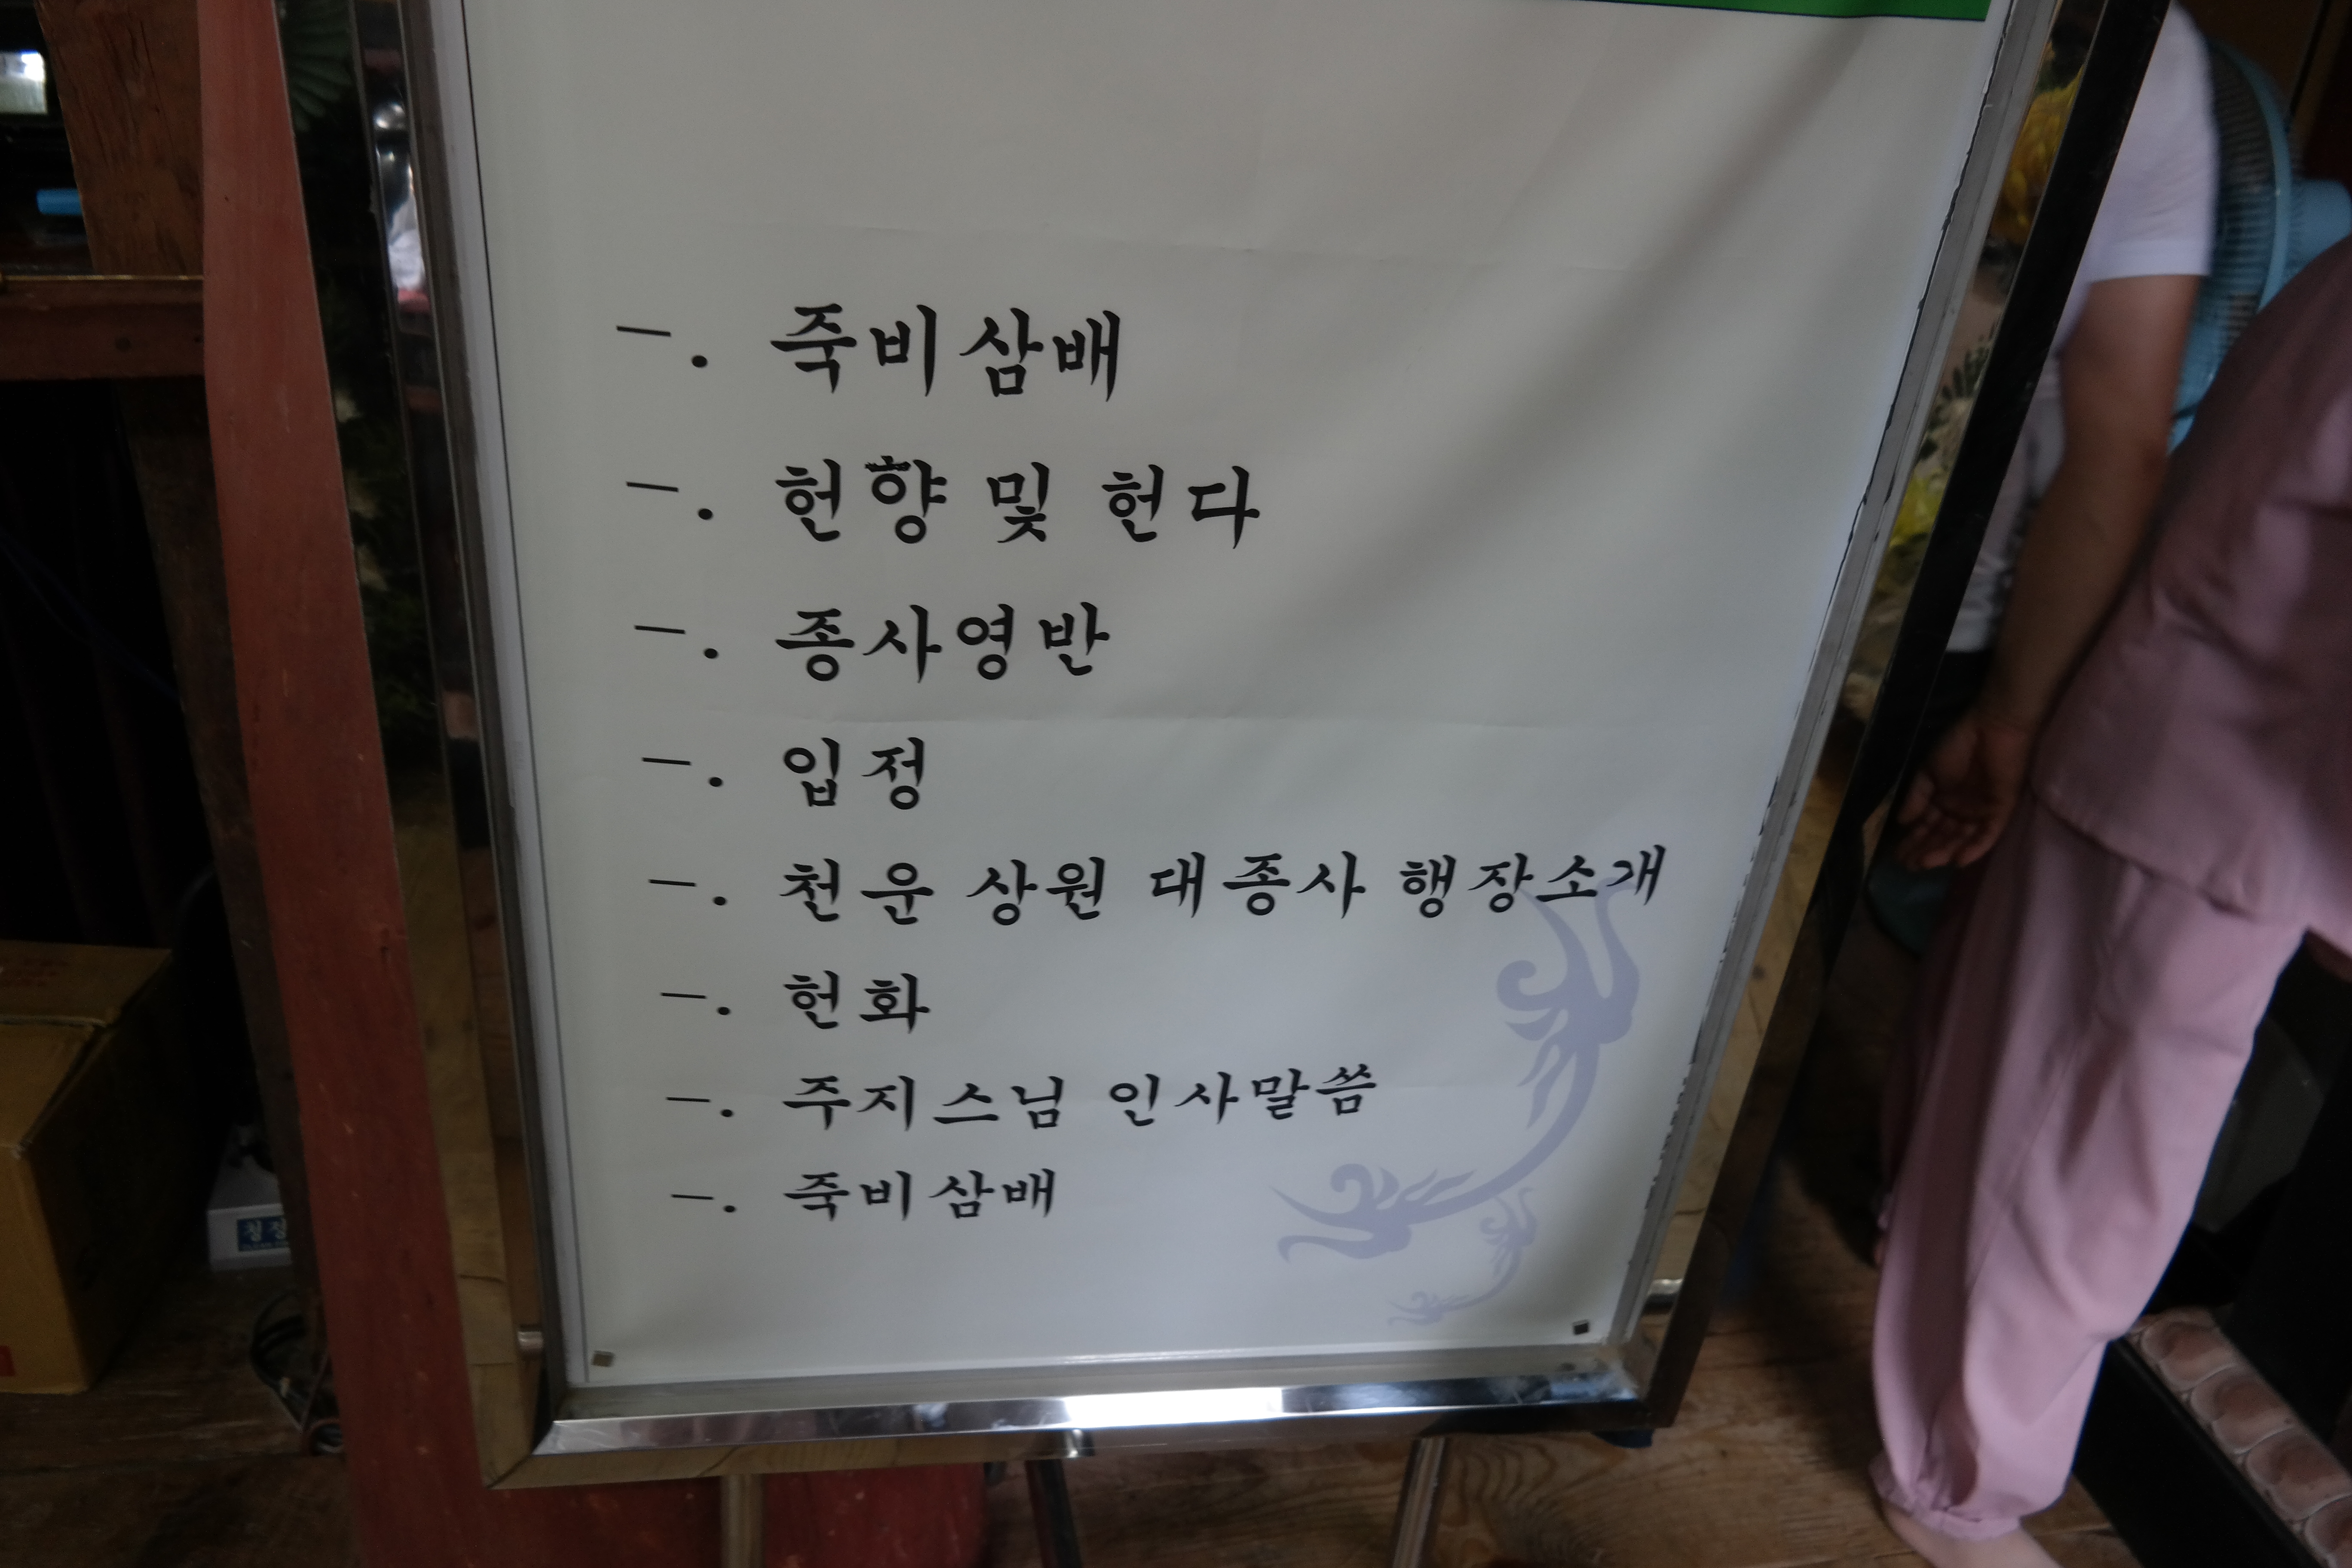 一. 죽비삼배
一. 헌향 및 헌다
一. 종사영반
一. 입정
一. 천운 상원 대종사 행장소개
一. 헌화
一. 주지스님 인사말씀
一. 죽비삼배